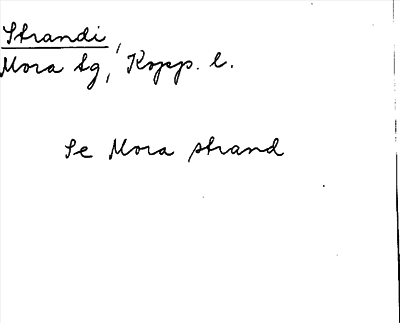 Strandi,
Mora sg, Kopp. l.
Se Mora strand